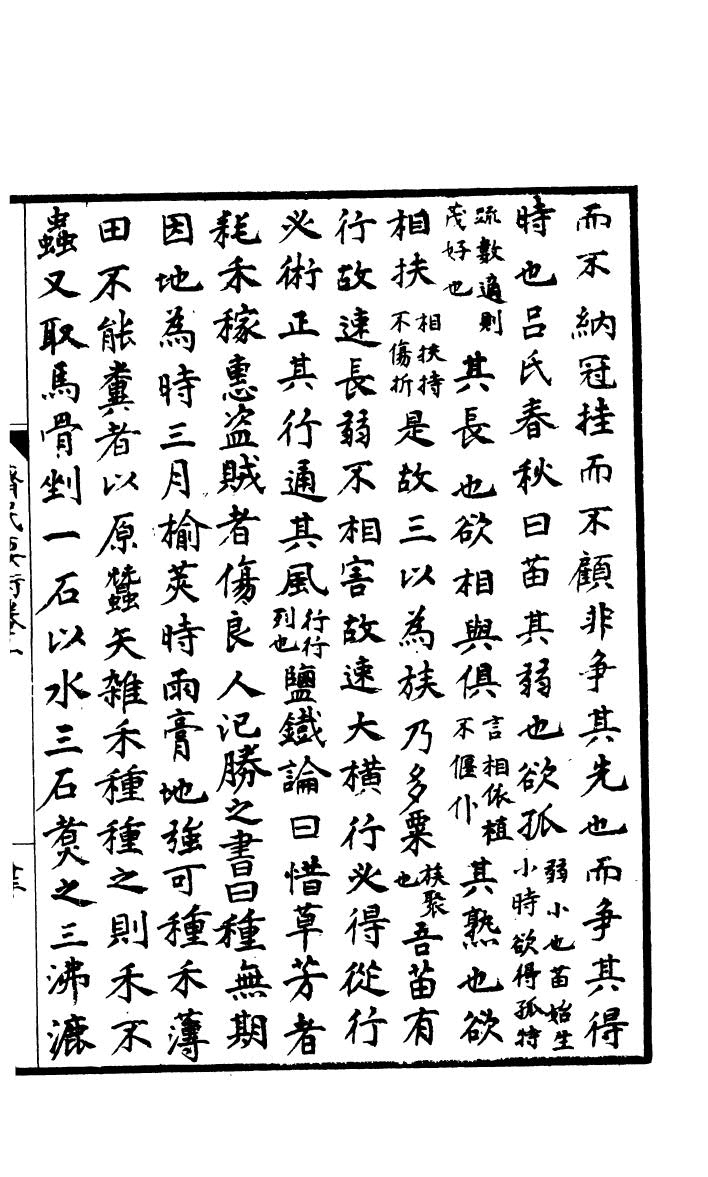 而不納冠挂而不顧非争其先也而争其得
時也吕氏春秋曰苗其弱也欲孤弱小也苗始生小時欲得孤特
疏數適則茂好也其長也欲相與俱言相依植不偃仆其熟也欲
相扶相扶持不傷折是故三以為族乃多粟族聚也吾苗有
行故速長弱不相害故速大横行必得從行
必術正其行通其風行行列也鹽鐵論曰惜草芳者
耗禾稼惠盗賊者傷良人氾勝之書曰種無期
因地為時三月榆莢時雨膏地強可種禾薄
田不能糞者以原蠶矢雜禾種種之則禾不
蟲又取馬骨剉一石以水三石煑之三沸漉
齊民要術卷一